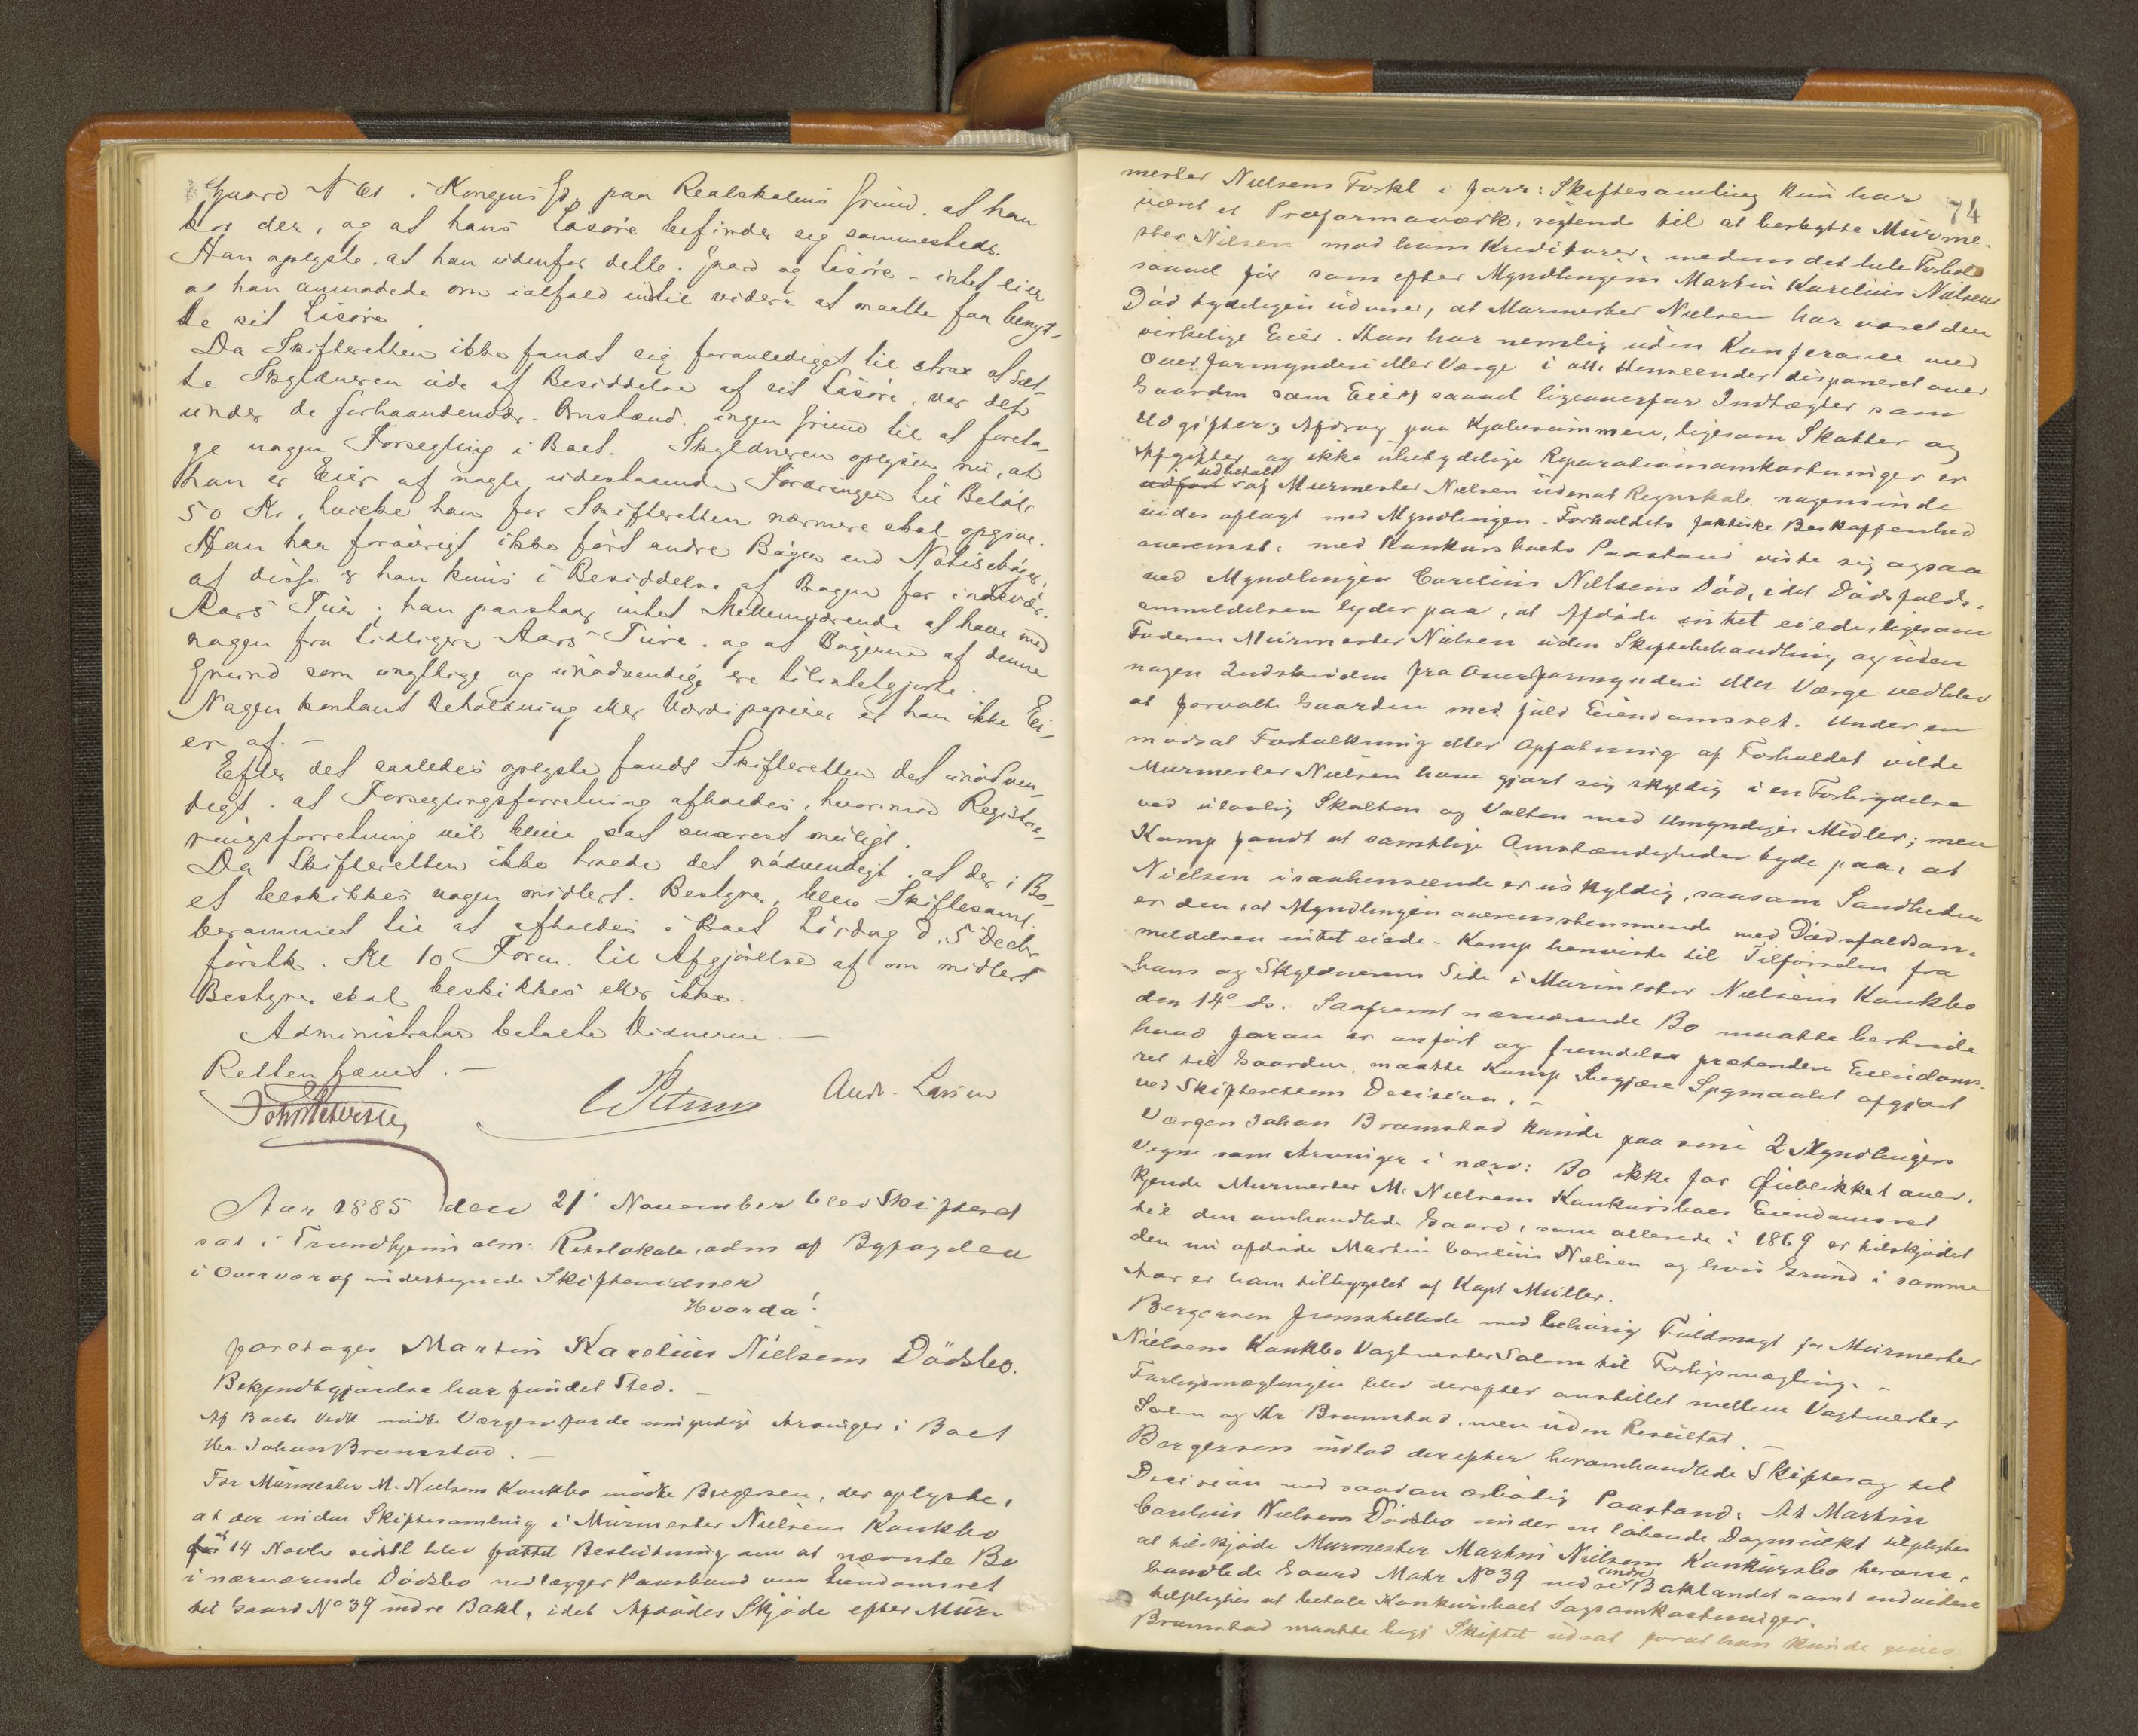 Gaard N 61 i Kongens Gd, paa Realskolens Grund. at han
bor der, og at hans Løsøre befinder sig sammesteds.
Han oplyste. at han udenfor dette. Gaard og Løsøre - intet eier
og han anmodede om ialfald indtil videre at maatte faa benyt-
te sit Løsøre.
Da Skifteretten ikke fandt sig foranlediget til strax at sæt-
te Skyldneren ude af Besiddelse af sit Løsøre, var det
under de forhaandenvær. Omstænd. ingen Grund til at foreta-
ge nogen Forsegling i Boet. Skyldneren oplyser nu, at
han er Eier af nogle udestaaende Fordringer til Beløb
50 Kr, hvilke han for Skifteretten nærmere skal opgive.
Han har forøvrigt ikke ført andre Bøger end Notisebøger,
af disse er han kuns i Besiddelse af Bogen for indevær.
Aars Tur; han paastaar intet Mellemværende at have med
nogen fra tidligere Aars Ture. og at Bøgerne af denne
Grund som unyttige og unødvendige ere tilintetgjorte.
Nogen kontant Beholdning eller Værdipapirer er han ikke Ei-
er af. -
Efter det saaledes oplyste fandt Skifteretten det unødven-
digt. at Forseglingsforretning afholdes, hvorimod Registre-
ringsforretning vil blive sat snarest muligt.
Da Skifteretten ikke troede det nødvendigt. at der i Bo-
et beskikkes nogen midlert. Bestyrer, blev Skiftesaml.
berammet til at afholdes i Boet Lørdag d. 5 Decbr
førstk. Kl 10 Form. til Afgjørelse af om midlert
Bestyrer skal beskikkes eller ikke.
Administrator betalte Vidnerne. -
Retten hævet. -
Andr. Larsen
Aar 1885 den 21. November blev Skifteret
sat i Trondhjems alm: Retslokale, adm af Byfogden
i Overvær af undertegnede Skiftevidner
Hvorda!
foretages Martin Karelius Nielsens Dødsbo.
Bekjendtgjørelse har fundet Sted. -
Af Boets Vedk mødte Værgen for de umyndige Arvinger i Boet
Hr Johan Bramstad. -
For Murmester M. Nielsens Konkbo mødte Bergersen, der oplyste,
at der under Skiftesamling i Murmester Nielsens Konkbo
14 Novbr sidstl blev fattet Beslutning om at nævnte Bo
i nærværende Dødsbo nedlægger Paastand om Eiendomsret
til Gaard No 39 indre Bakl, idet Afdødes Skjøde efter Mur-
74
mester Nielsens Forkl i forr: Skiftesamling kun har
været et Proformaværk, sigtende til at beskytte Murme-
ster Nilsen mod hans Kreditorer, medens det hele Forhold
saavel før som efter Myndlingens Martin Karelius Nielsens
Død tydeligen udviser, at Murmester Nielsen har været den
virkelige Eier. Han har nemlig uden Konferance med
Overformynderi eller Værge i alle Henseender disponeret over
Gaarden som Eier, saavel ligeoverfor Indtægter som
Udgifter; Afdrag paa Kjøbesummen, ligesom Skatter og
Afgifter og ikke ubetydelige Reparationsomkostninger er
udbetalt af Murmester Nielsen udenat Regnskab nogensinde
vides aflagt med Myndlingen. Forholdets faktiske Beskaffenhed
overensst: med Konkursboets Paastand viste sig ogsaa
ved Myndlingen Carelius Nielsens Død, idet Dødsfalds-
anmeldelsen lyder paa, at Afdøde intet eiede, ligesom
Faderen Murmester Nielsen uden Skiftebehandling og uden
nogen Indskriden fra Overformynderi eller Værge vedblev
at forvalte Gaarden med fuld Eiendomsret. Under en
modsat Fortolkning eller Opfatning af Forholdet vilde
Murmester Nielsen have gjort sig skyldig i en Forbrydelse
ved ulovlig Skalten og Valten med Umyndiges Midler; men
Komp fandt at samtlige Omstændigheder tyde paa, at
Nielsen i saahenseende er uskyldig, saasom Sandheden
er den, at Myndlingen overensstemmende med Dødsfaldsan-
meldelsen intet eiede. - Komp henviste til Tilførselen fra
hans og Skyldnerens Side i Murmester Nielsens Konkbo
den 14de ds. Saafremt nærværende Bo maatte bestride
hvad foran er anført og fremdeles prætendere Eiendoms-
ret til Gaarden, maatte Komp begjære Spgmaalet afgjort
ved Skifterettens Decision. -
Værgen Johan Bramstad kunde paa sine 2 Myndlingers
Vegne som Arvinger i nærv: Bo ikke for Øieblikket aner-
kjende Murmester M. Nielsens Konkursboes Eiendomsret
til den omhandlede Gaard, som allerede i 1869 er tilskjødet
den nu afdøde Martin Carelius Nielsen og hvis Grund i samme
Aar er ham tilbygslet af Kapt Müller.
Bergersen fremstillede med behørig Fuldmagt for Murmester
Nielsens Konkbo Vagtmester Salem til Forligsmægling. -
Forligsmæglingen blev derefter anstillet mellem Vagtmester
Salem og Hr Bramstad, men uden Resultat. -
Bergersen indlod derefter heromhandlede Skiftesag til
Decision med saadan ærbødig Paastand: At Martin
Carelius Nielsens Dødsbo under en løbende Dagmulkt tilpligtes
at tilskjøde Murmester Martin Nielsens Konkursbo herom-
handlede Gaard Matr No 39 indre Baklandet samt endvidere
tilpligtes at betale Konkursboet Sagsomkostninger.
Bramstad maatte begj Skiftet udsat forat han kunde gives